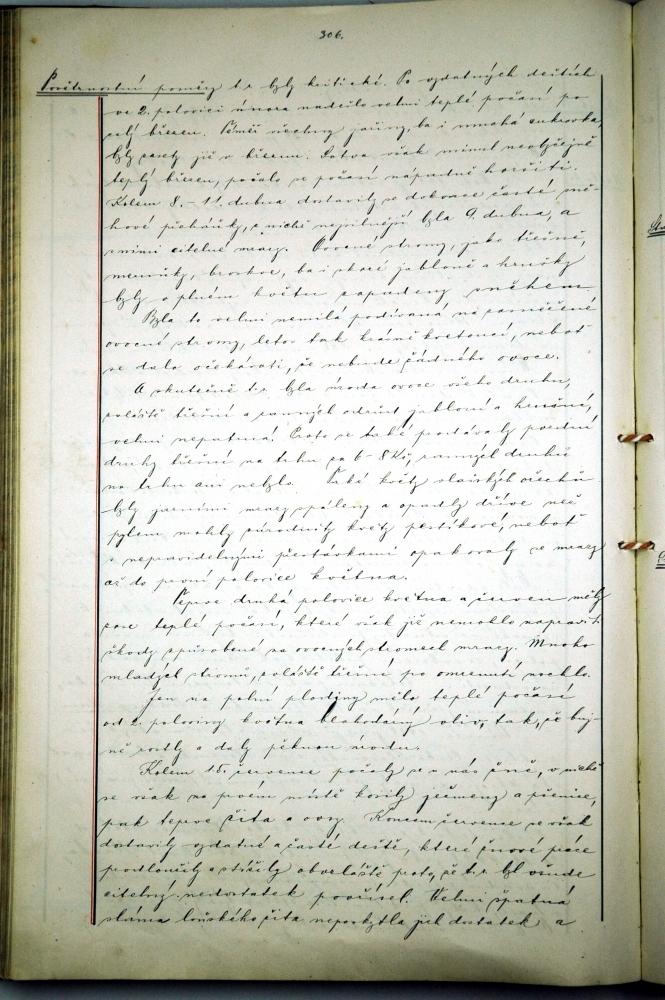 306.
Povětrnostní poměry t.r. byly kritické. Po vydatných deštích
ve 2. polovici února nadešlo velmi teplé počasí po
celý březen. Téměř všechny jařiny, ba i mnohá cukrovka,
byly zasety již v březnu. Sotva však minul neobyčejně
teplý březen, počalo se počasí nápadně horšiti.
Kolem 8. - 11. dubna dostavily se dokonce časté sně-
hové přeháňky, z nichž nejsilnější byla 9. dubna, a
s nimi citelné mrazy. Ovocné stromy, jako třešně,
meruňky, broskve, ba i skoré jabloně a hrušky
byly v plném květu zapadeny sněhem.
Byla to velmi nemilá podívaná na zasněžené
ovocné stromy, letos tak krásně kvetoucí, neboť
se dalo očekávati, že nebude žádného ovoce.
A skutečně t.r. byla úroda ovoce všeho druhu,
zvláště třešní a ranných odrůd jabloní a hrušní,
velmi nepatrná. Proto se také prodávaly pozdní
druhy třešní na trhu za 6 - 8 Kč, ranných druhů
na trhu ani nebylo. Také květy vlašských ořechů
byly jarními mrazy spáleny a opadly dříve než
pylem mohly zúrodniti květy pestíkové, neboť
s nepravidelnými přestávkami opakovaly se mrazy
až do první polovice května.
Teprve druhá polovice května a červen měly
zase teplé počasí, které však již nemohlo napraviti
škody způsobené na ovocných stromech mrazy. Mnoho
mladých stromů, zvláště třešní, po omrznutí uschlo.
Jen na polní plodiny mělo teplé počasí
od 2. poloviny května blahodárný vliv, tak, že buj-
ně rostly a daly pěknou úrodu.
Kolem 15. července počaly se u nás žně, v nichž
se však na prvém místě kosily ječmeny a pšenice,
pak teprve žita a ovsy. Koncem července se však
dostavily vydatné a časté deště, které žňové práce
prodloužily a ztížily obzvláště proto, že t.r. byl všude
citelný nedostatek povřísel. Velmi špatná
sláma loňského žita neposkytla jich dostatek a